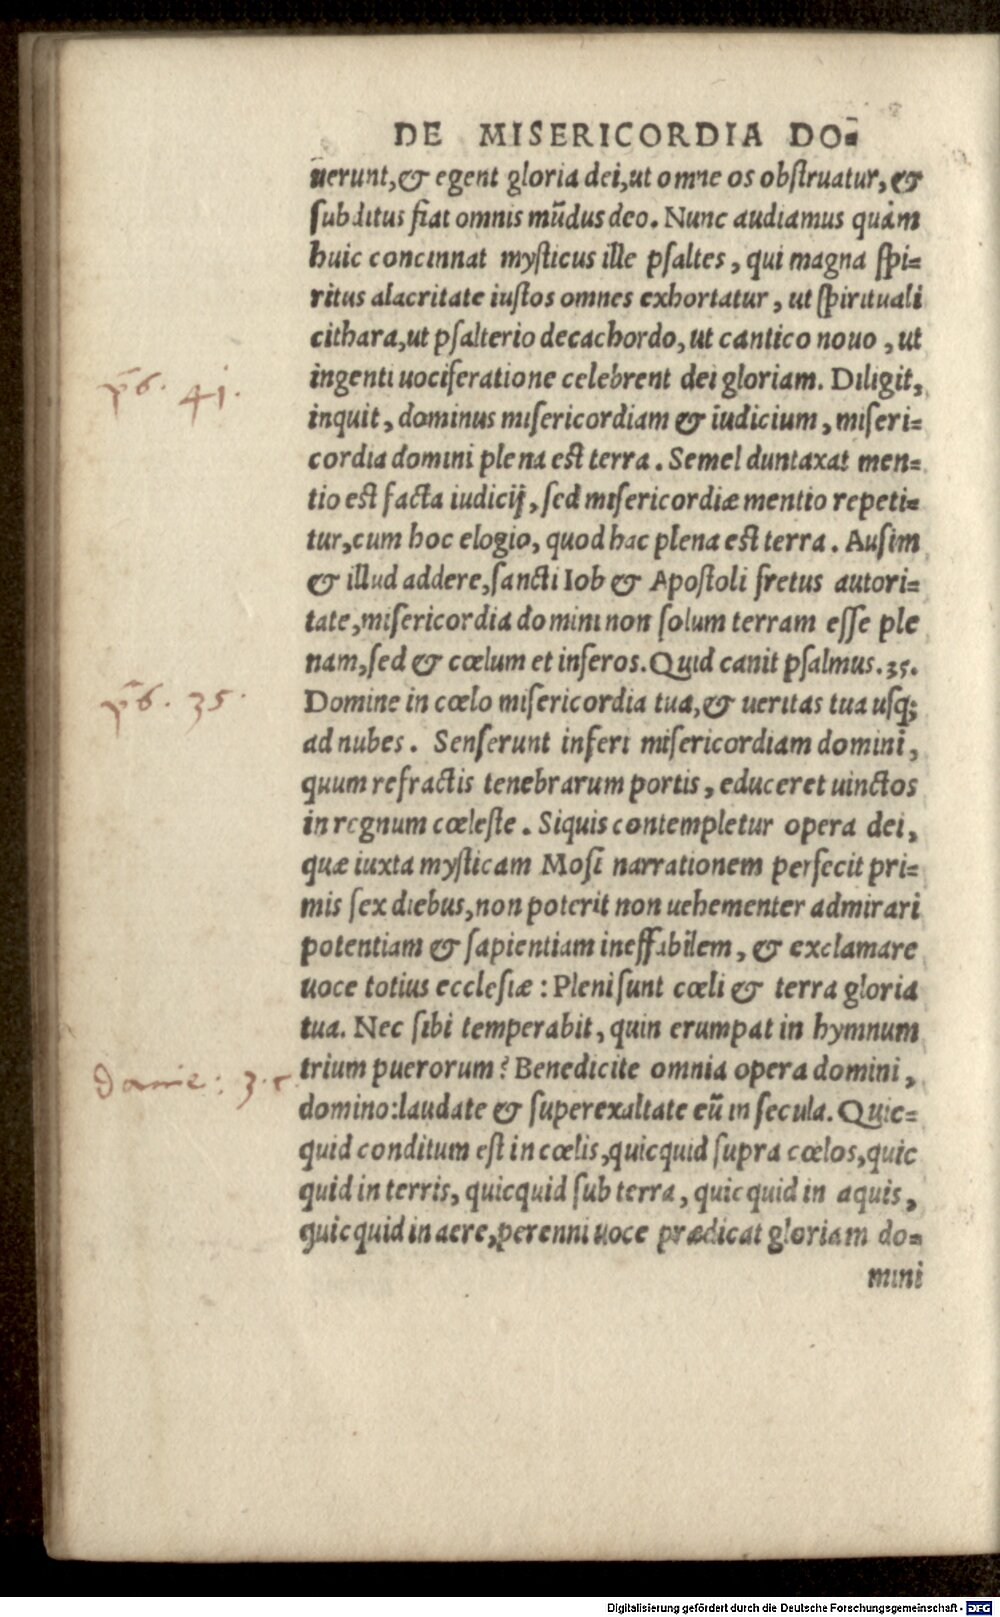 DE MISERICORDIA DO⸗
uerunt,& egent gloria dei,ut omne os obſtruatur,&
ſubditus fiat omnis mūdus deo. Nunc audiamus quàm
huic concinnat myſticus ille pſaltes, qui magna ſpi⸗
ritus alacritate iuſtos omnes exhortatur, ut ſpirituali
cithara,ut pſalterio decachordo, ut cantico nouo, ut
ingenti uociferatione celebrent dei gloriam. Diligit,
ps. 41.
inquit, dominus miſericordiam & iudicium, miſeri⸗
cordia domini plena eſt terra. Semel duntaxat men⸗
tio eſt facta iudicij, ſed miſericordiæ mentio repeti⸗
tur,cum hoc elogio, quod hac plena eſt terra. Auſim
& illud addere,ſancti Iob & Apoſtoli fretus autori⸗
tate,miſericordia domini non ſolum terram eſſe ple
nam,ſed & cœlum et inferos. Quid canit pſalmus.35.
ps. 35.
Domine in cœlo miſericordia tua,& ueritas tua uſq;
ad nubes. Senſerunt inferi miſericordiam domini,
quum refractis tenebrarum portis, educeret uinctos
in regnum cœleſte. Siquis contempletur opera dei,
quæ iuxta myſticam Moſi narrationem perfecit pri⸗
mis ſex diebus,non poterit non uehementer admirari
potentiam & ſapientiam ineffabilem, & exclamare
uoce totius eccleſiæ: Pleni ſunt cœli & terra gloria
tua. Nec ſibi temperabit, quin erumpat in hymnum
trium puerorum? Benedicite omnia opera domini,
Danie: 3.
domino:laudate & ſuperexaltate eū in ſecula. Quic⸗
quid conditum eſt in cœlis,quicquid ſupra cœlos,quic
quid in terris, quicquid ſub terra, quicquid in aquis,
quicquid in aere,perenni uoce prædicat gloriam do⸗
mini
Digitalisierung gefördert durch die Deutsche Forschungsgemeinschaft - DFG